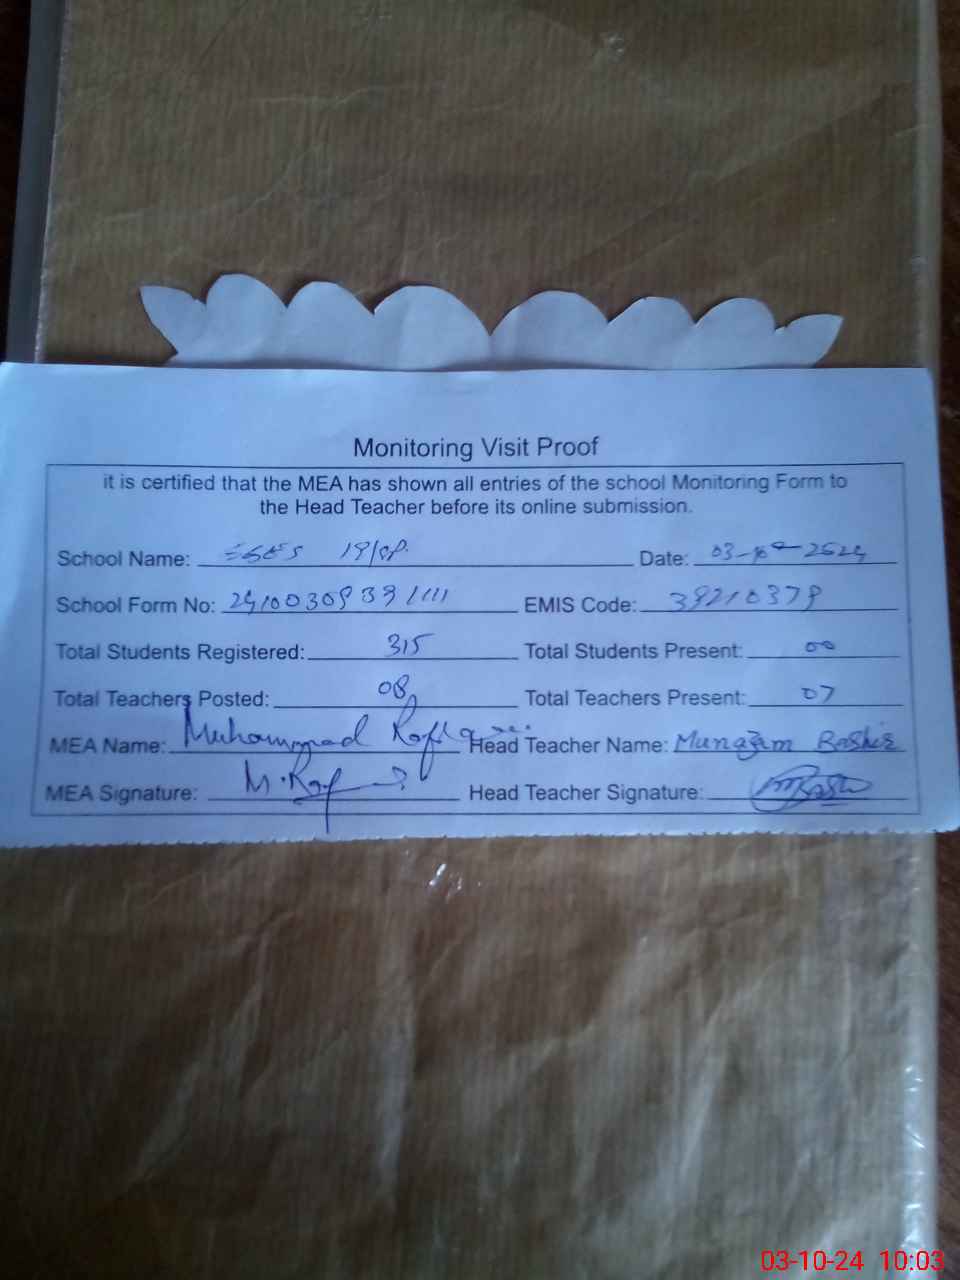 Monitoring Visit Proof
it is certified that the MEA has shown all entries of the school Monitoring Form to
the Head Teacher before its online submission.
School Name: 19/SP. Date:
School Form No: EMIS Code: 39210379
Total Students Registered: 315 Total Students Present: 00
Total Teachers Posted: 08 Total Teachers Present: 07
MEA Name: Muhammad Head Teacher Name: Munazam Bashir
MEA Signature: Head Teacher Signature:
03-10-24 10:03